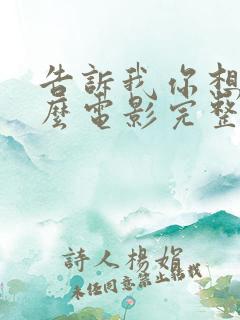 告訴我 你想
麼電影完整
詩人楊娟
未任同意禁止転載